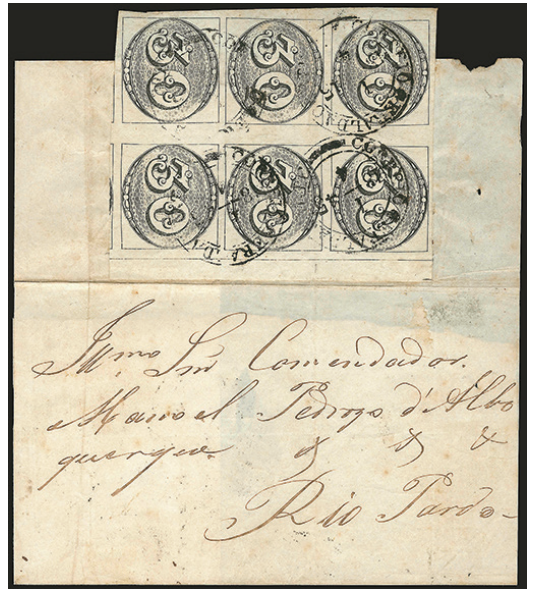 30 30 30
30 30 30
Illmo Snr Comendador.
Manoel Pedrozo d'Albo
querque & & &
Rio Pardo-